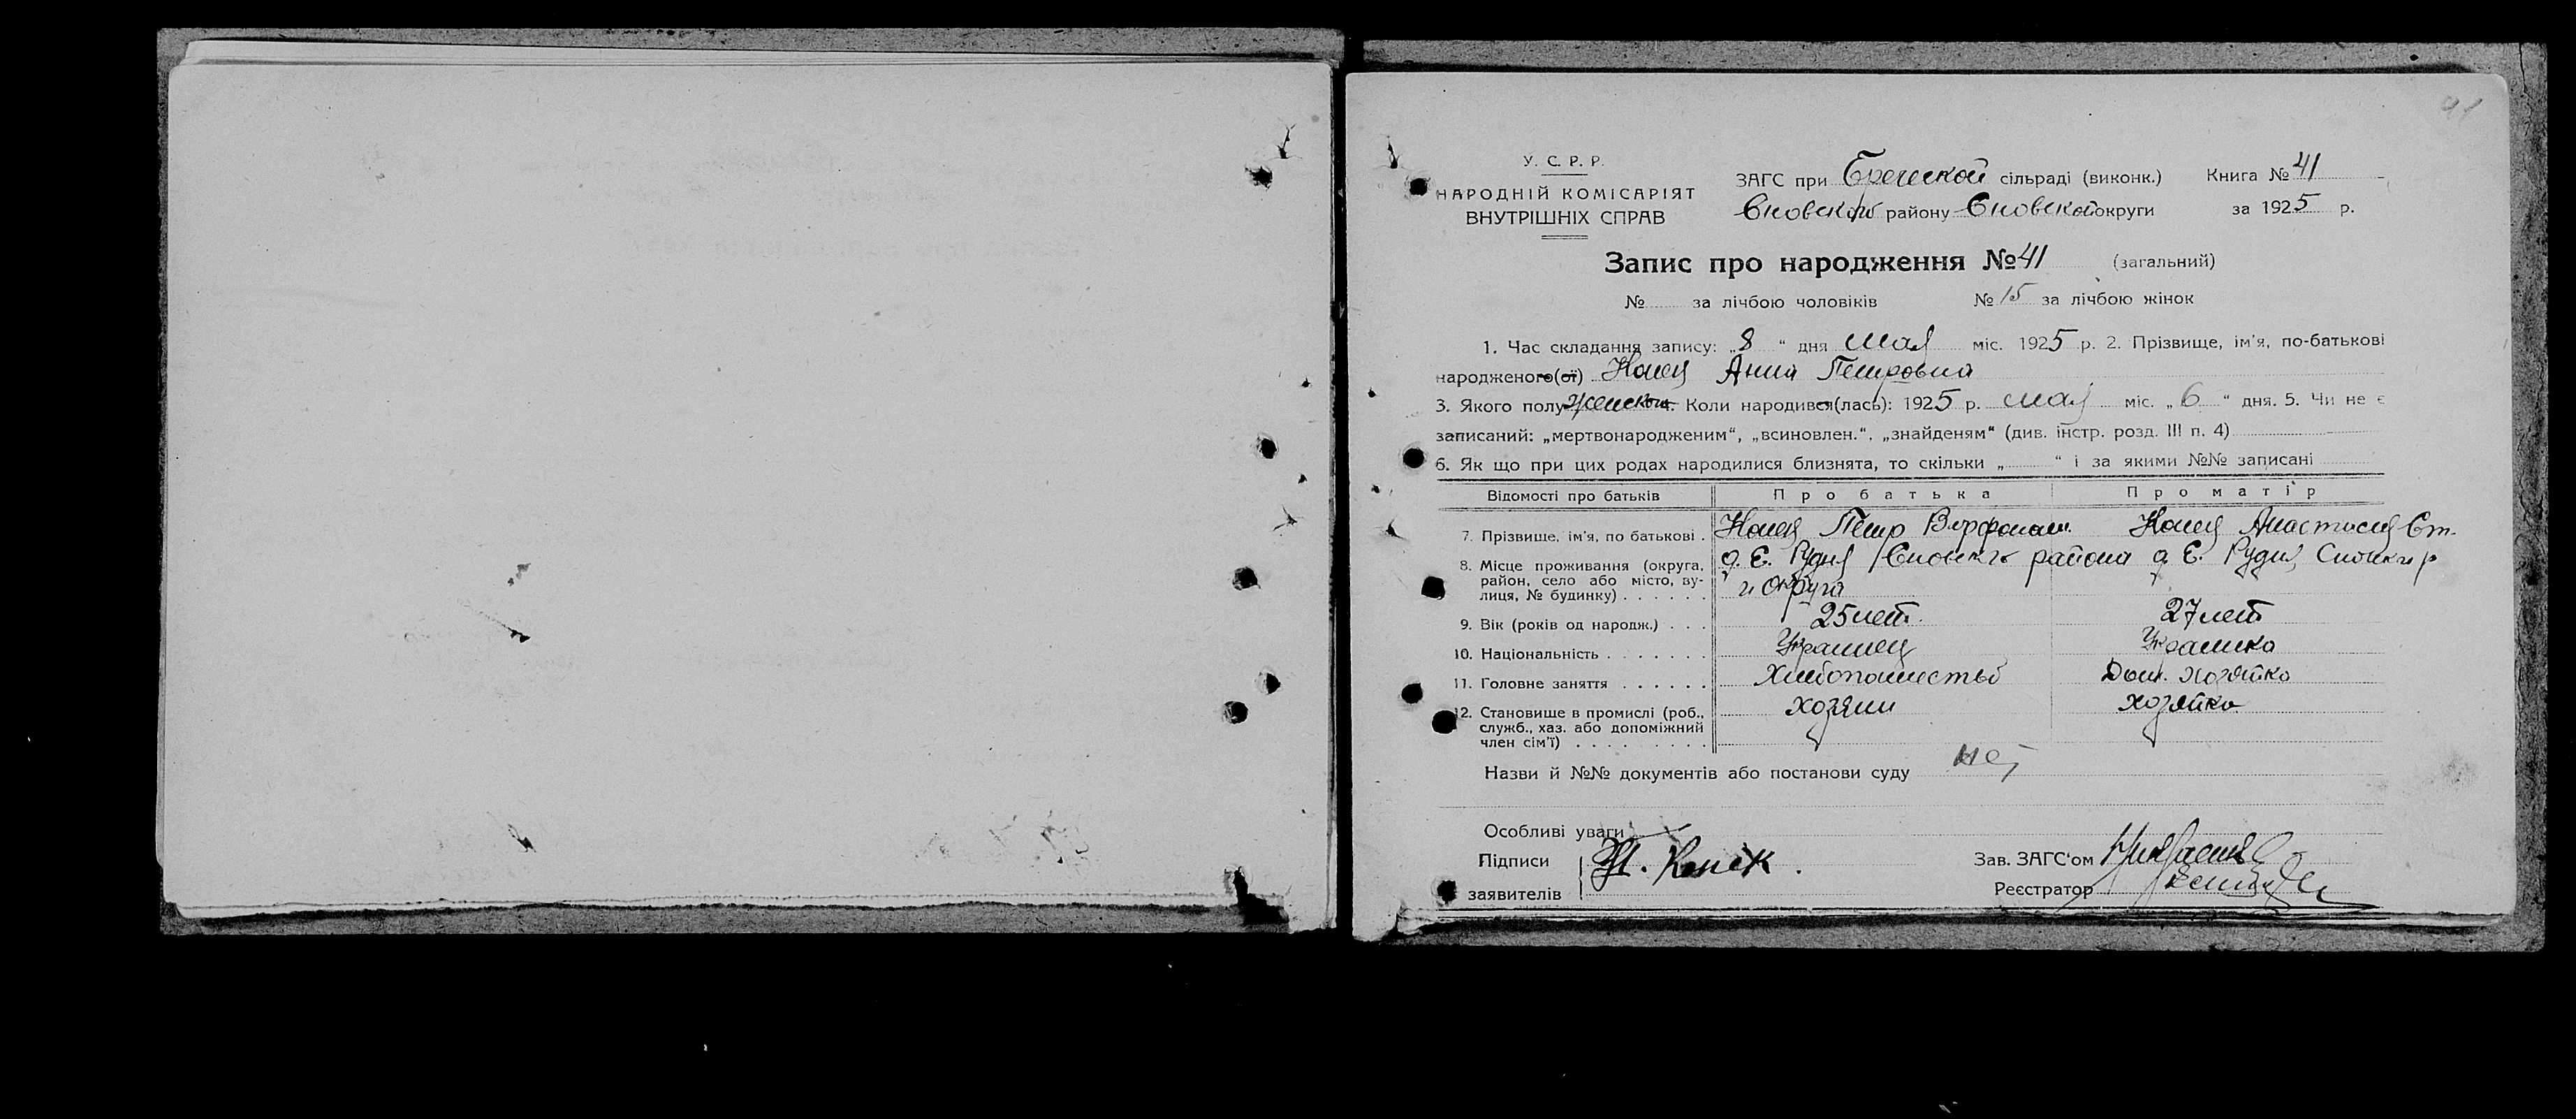 91
У. С. Р. Р.
НАРОДНІЙ КОМІСАРІЯТ
ВНУТРІШНІХ СПРАВ
ЗАГС при Бречской сільраді (виконк.) Книга № 41
Сновского району Сновской округи за 1925 р.
Запис про народження № 41 (загальний)
№ за лічбою чоловіків № 15 за лічбою жінок
1. Час складання запису: „8“ дня мая міс. 1925 р. 2. Прізвище, ім'я, по-батькові
народженого(ої) Анна Петровна
3. Якого полу женского. Коли народився(лась): 1925 р. мая міс. „6“ дня. 5. Чи не є
записаний: „мертвонародженим“, „всиновлен.“, „знайденям“ (див. інстр. розд. III п. 4)
6. Як що при цих родах народилися близнята, то скільки „ “ і за якими №№ записані
Відомості про батьків Про батька Про матір
7. Прізвище, ім'я, по батькові . Петр Анастасия Ст.
8. Місце проживання (округа, район, село або місто, вулиця, № будинку) . . . . . . д. Е. Рудня Сновского района и округа д. Е. Рудня
9. Вік (років од народж.) . . . 25 лет. 27 лет
10. Національність . . . . . . . Украинец Украинка
11. Головне заняття . . . . . . Хлебопашество Дом. хозяйка
12. Становище в промислі (роб., служб., хаз. або допоміжний член сім'ї) . . . . . . . . . хозяин хозяйка
Назви й №№ документів або постанови суду нет
Особливі уваги
Підписи
заявителів
Зав. ЗАГС'ом
Реєстратор